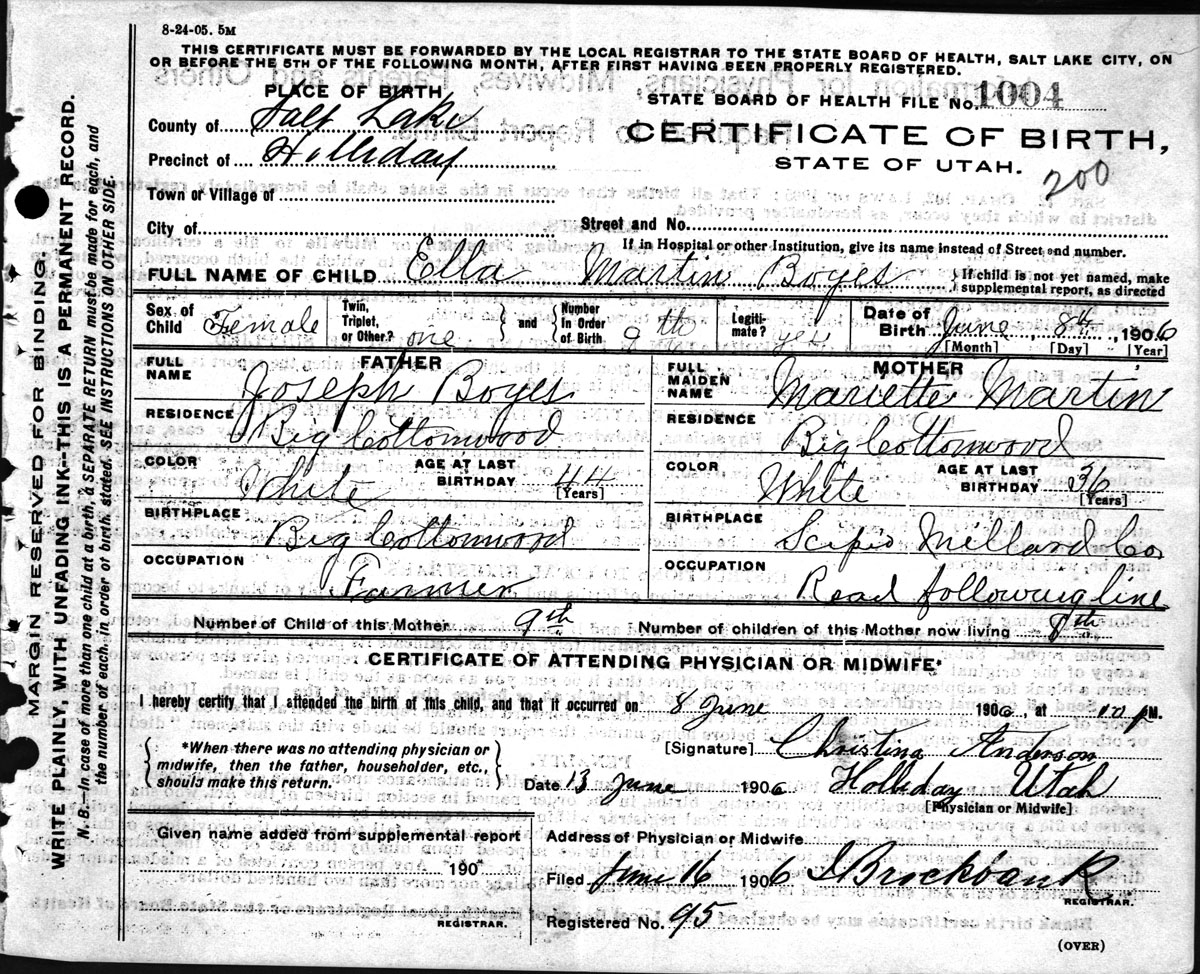 8-24-05. 5M
THIS CERTIFICATE MUST BE FORWARDED BY THE LOCAL REGISTRAR TO THE STATE BOARD OF HEALTH, SALT LAKE CITY, ON
OR BEFORE THE 5TH OF THE FOLLOWING MONTH, AFTER FIRST HAVING BEEN PROPERLY REGISTERED.
PLACE OF BIRTH
STATE BOARD OF HEALTH FILE No. 1004
County of Salt Lake
CERTIFICATE OF BIRTH,
Precinct of Holliday
STATE OF UTAH.
200
Town or Village of
City of
Street and No.
If in Hospital or other Institution, give its name instead of Street and number.
FULL NAME OF CHILD Ella Martin Boyes
{If child is not yet named, make supplemental report, as directed
Sex of Child Female Twin, Triplet, or Other? one and Number In Order of Birth 9th Legiti-mate? yes Date of Birth June 8th, 1906
[Month] [Day] [Year]
FATHER
FULL NAME Joseph Boyes
RESIDENCE Big Cottonwood
COLOR White AGE AT LAST BIRTHDAY 44 [Years]
BIRTHPLACE Big Cottonwood
OCCUPATION Farmer
MOTHER
FULL MAIDEN NAME Mariette Martin
RESIDENCE Big Cottonwood
COLOR White AGE AT LAST BIRTHDAY 36 [Years]
BIRTHPLACE Scipio Millard Co
OCCUPATION Read following line
Number of Child of this Mother 9th Number of children of this Mother now living 8th
CERTIFICATE OF ATTENDING PHYSICIAN OR MIDWIFE*
I hereby certify that I attended the birth of this child, and that it occurred on 8 June 1906, at 10 PM.
{*When there was no attending physician or
midwife, then the father, householder, etc.,
should make this return.}
[Signature] Christina Anderson
Date 13 June 1906 Holliday Utah
[Physician or Midwife]
Given name added from supplemental report
190
REGISTRAR.
Address of Physician or Midwife
Filed June 16 1906 Brockbank
REGISTRAR.
Registered No. 95
(OVER)
MARGIN RESERVED FOR BINDING.
WRITE PLAINLY, WITH UNFADING INK--THIS IS A PERMANENT RECORD.
N. B.--In case of more than one child at a birth, a SEPARATE RETURN must be made for each, and
the number of each, in order of birth, stated. SEE INSTRUCTIONS ON OTHER SIDE.